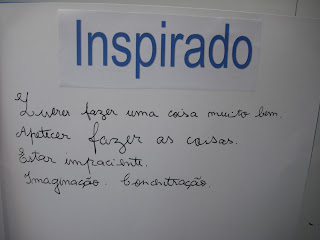 Inspirado
Querer fazer uma coisa muito bem.
Apetecer fazer as coisas.
Estar impaciente.
Imaginação. Concentração.